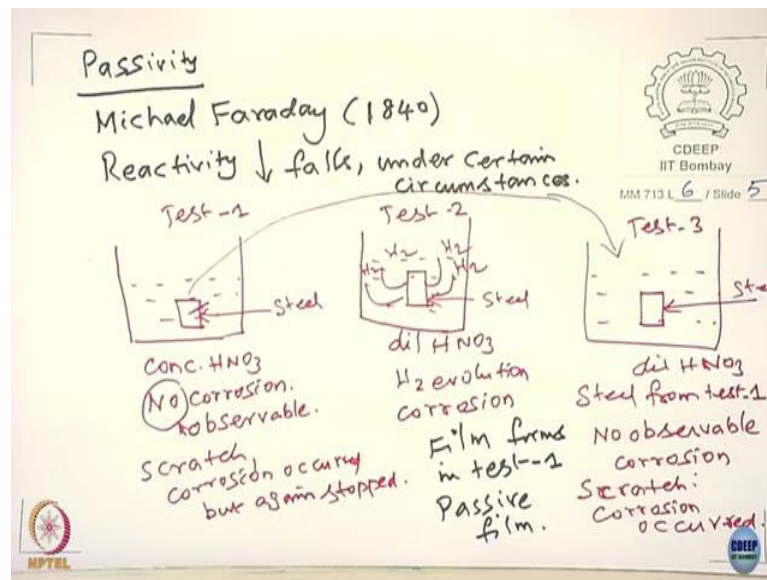 Passivity
Michael Faraday (1840)
Reactivity ↓ falls, under certain
circumstances.
CDEEP
IIT Bombay
MM 713 L 6 / Slide 5
Test-1
Steel
Conc. HNO3
No corrosion.
observable.
Scratch,
corrosion occurred
but again stopped.
Test-2
H2 H2 H2 H2
Steel
dil HNO3
H2 evolution
corrosion
Film forms
in test-1
Passive
film.
Test-3
Ste
dil HNO3
Steel from test-1
No observable
corrosion
Scratch:
Corrosion
occurred.
NPTEL
CDEEP
IIT BOMBAY